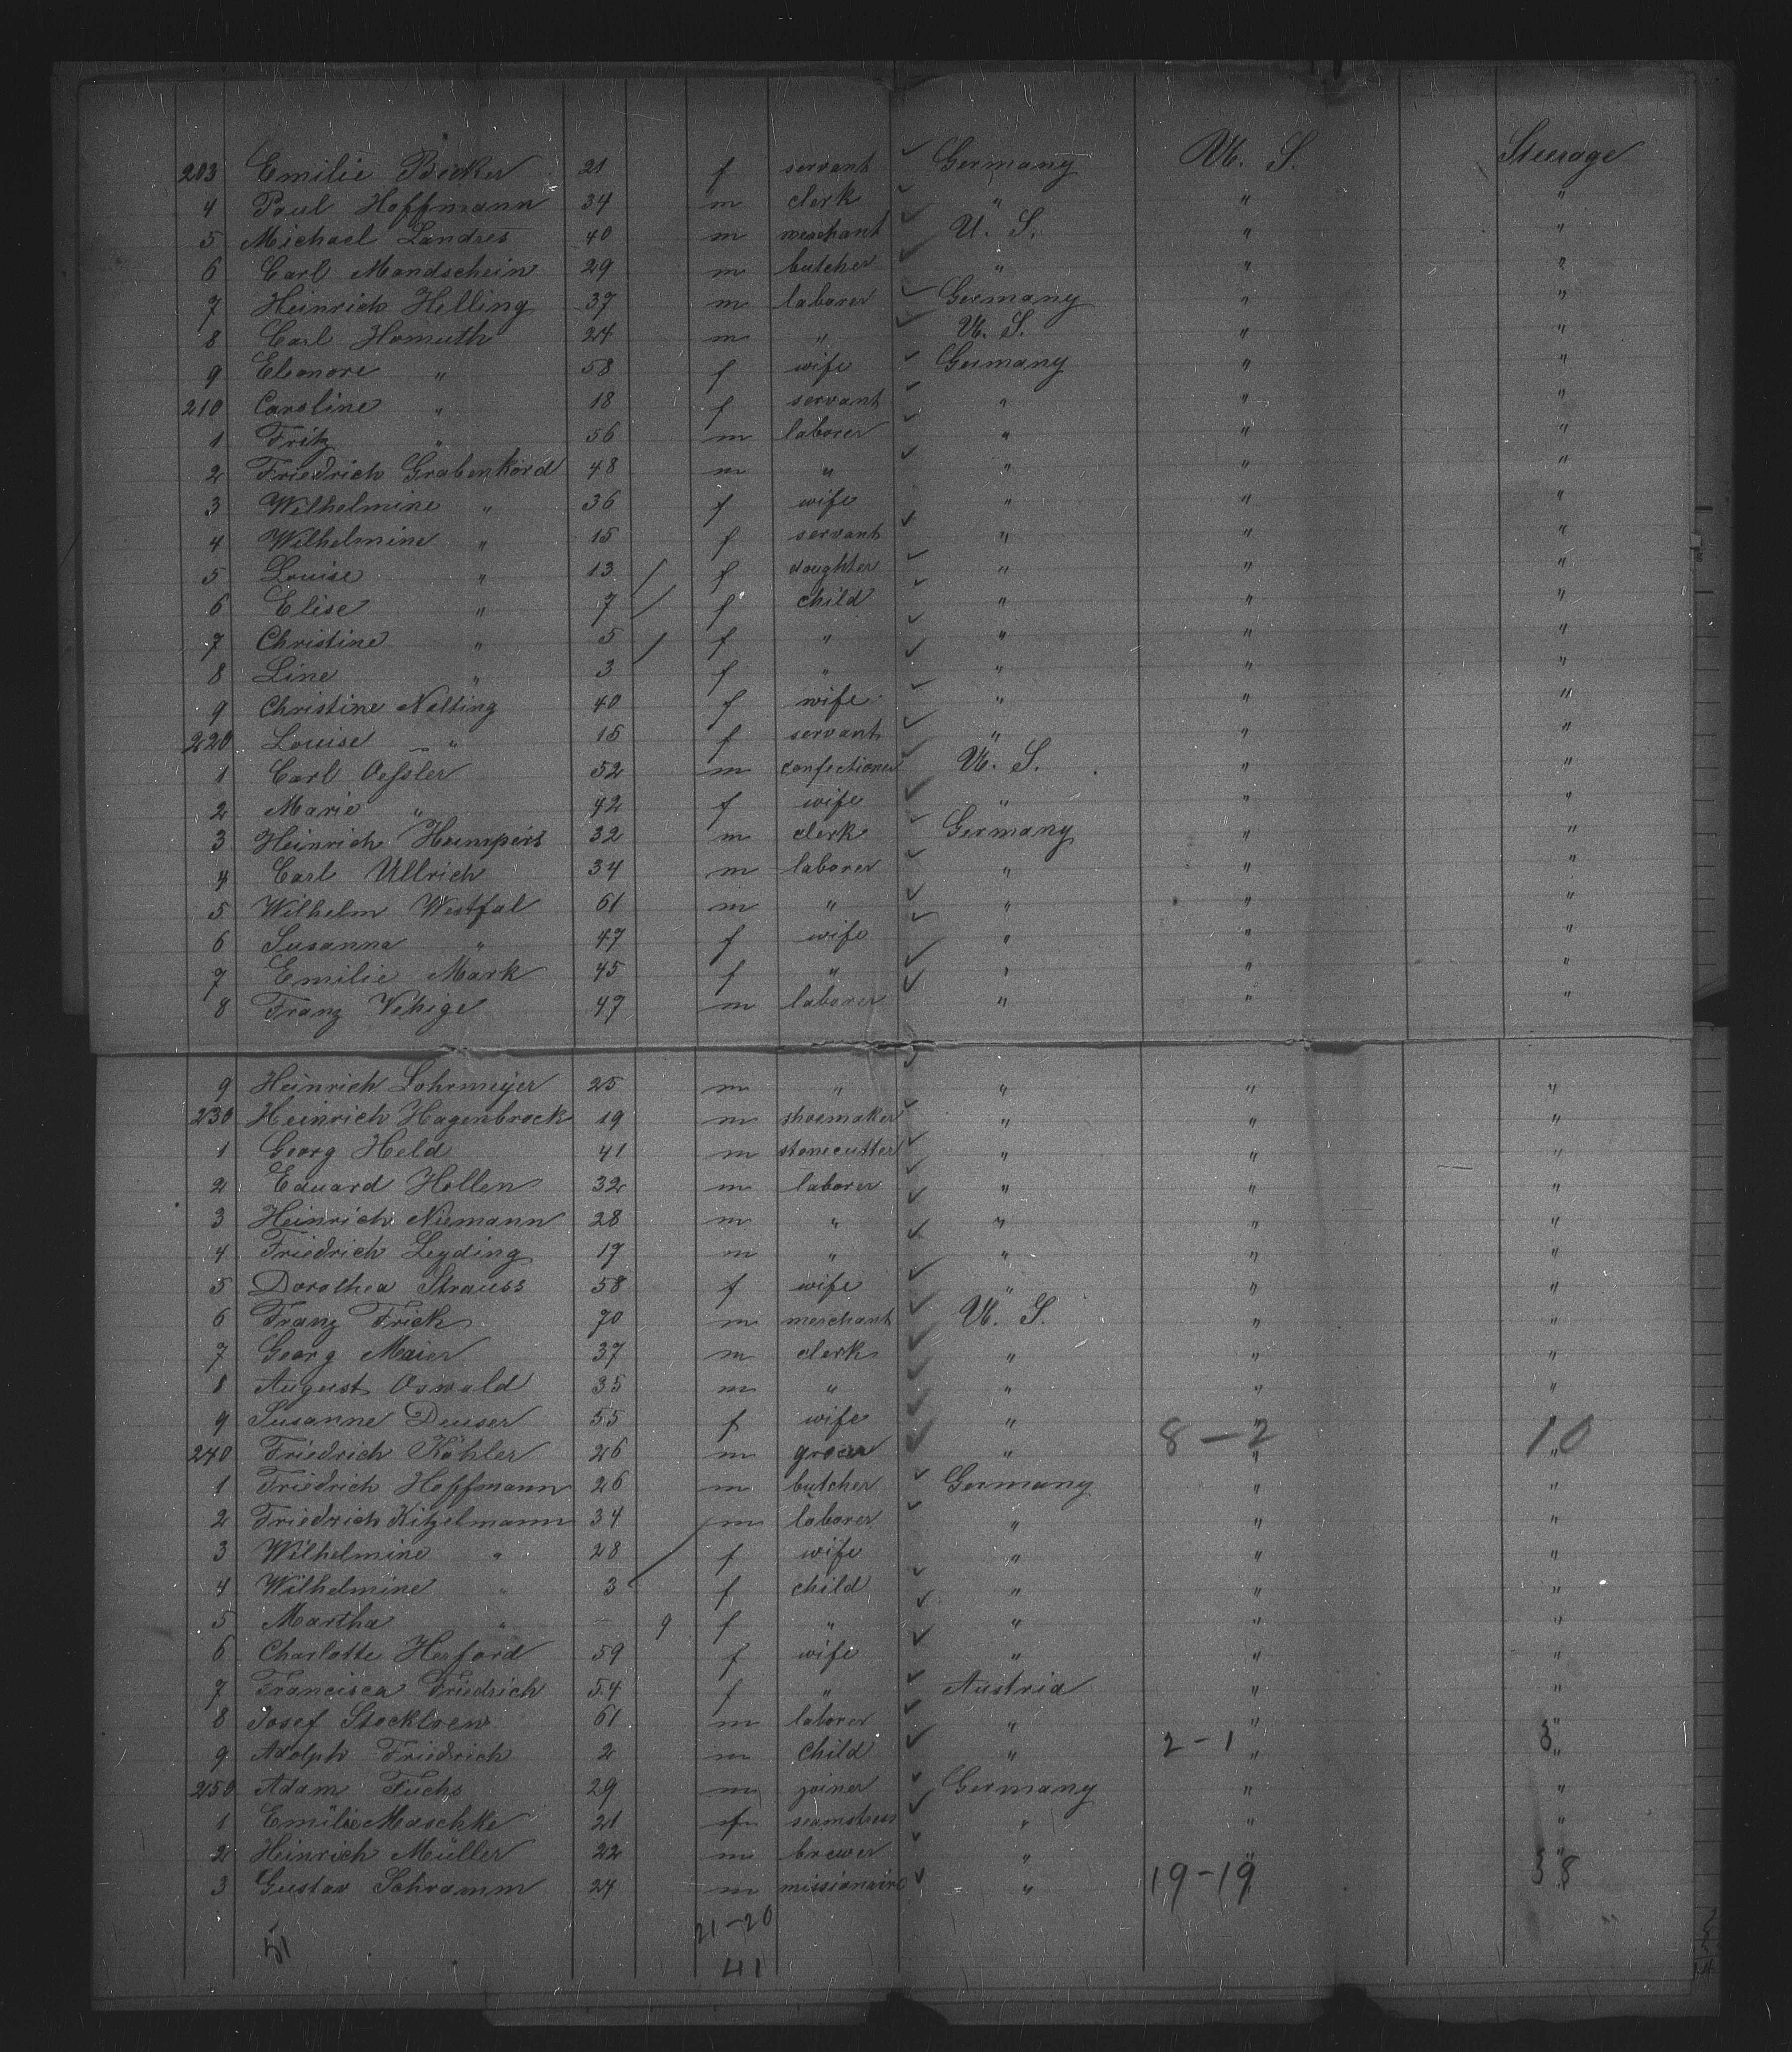 203 Emilie Bicker 21 f servant ✓ Germany U. S. Steerage
4 Paul Hoffmann 34 m clerk ✓ " " "
5 Michael Landres 40 m merchant ✓ U. S. " "
6 Carl Mandschein 29 m butcher ✓ " " "
7 Heinrich Helling 37 m laborer ✓ Germany " "
8 Carl Homuth 24 m " ✓ U. S. " "
9 Eleonore " 58 f wife ✓ Germany " "
210 Caroline " 18 f servant ✓ " " "
1 Fritz " 56 m laborer ✓ " " "
2 Friedrich Grabenkord 48 m " ✓ " " "
3 Wilhelmine " 36 f wife " " "
4 Wilhelmine " 15 f servant ✓ " " "
5 Louise " 13 / f daughter ✓ " " "
6 Elise " 7 / f child ✓ " " "
7 Christine " 5 / f " ✓ " " "
8 Line " 3 f " ✓ " " "
9 Christine Nolting 40 f wife ✓ " " "
220 Louise " 15 f servant ✓ " " "
1 Carl Oessler 52 m confectioner ✓ U. S. " "
2 Marie " 42 f wife ✓ " " "
3 Heinrich 32 m clerk ✓ Germany " "
4 Carl Ullrich 34 m laborer ✓ " " "
5 Wilhelm Westfal 61 m " ✓ " " "
6 Susanna " 47 f wife ✓ " " "
7 Emilie Mark 45 f " ✓ " " "
8 Franz Vehige 47 m laborer ✓ " " "
9 Heinrich Lohrmeyer 25 m " " " "
230 Heinrich Hagenbrock 19 m shoemaker ✓ " " "
1 Georg Held 41 m stonecutter ✓ " " "
2 Eduard Hollen 32 m laborer ✓ " " "
3 Heinrich Niemann 28 m " ✓ " " "
4 Friedrich Leyding 17 m " ✓ " " "
5 Dorothea Strauss 58 f wife ✓ " " "
6 Franz Frick 70 m merchant ✓ U. S. " "
7 Georg Maier 37 m clerk ✓ " " "
8 August Oswald 35 m " ✓ " " "
9 Susanne Deuser 55 f wife ✓ " " "
240 Friedrich Köhler 26 m grocer ✓ " 8-2 " 10 "
1 Friedrich Hoffmann 26 m butcher ✓ Germany " "
2 Friedrich Kitzelmann 34 m laborer ✓ " " "
3 Wilhelmine " 28 f wife " " "
4 Wilhelmine " 3 f child ✓ " " "
5 Martha " — 9 f " ✓ " " "
6 Charlotte Herford 59 f wife ✓ " " "
7 Francisca Friedrich 54 f " ✓ Austria " "
8 Josef 61 m laborer ✓ " " "
9 Adolph Friedrich 2 m child ✓ " 2-1 " 3 "
250 Adam Fuchs 29 m joiner ✓ Germany " "
1 Emilie Maschke 21 f seamstress ✓ " " "
2 Heinrich Müller 22 m brewer ✓ " " "
3 Gustav Schramm 24 m missionaire ✓ " 19-19 38
51 21-20
41